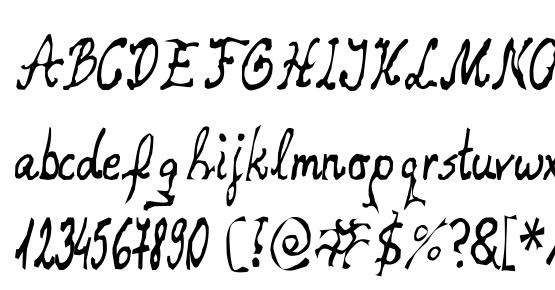 ABCDEFGHIJKLMNO
abcdefghijklmnopqrstuvwx
1234567890 (!@#$%?&[*/